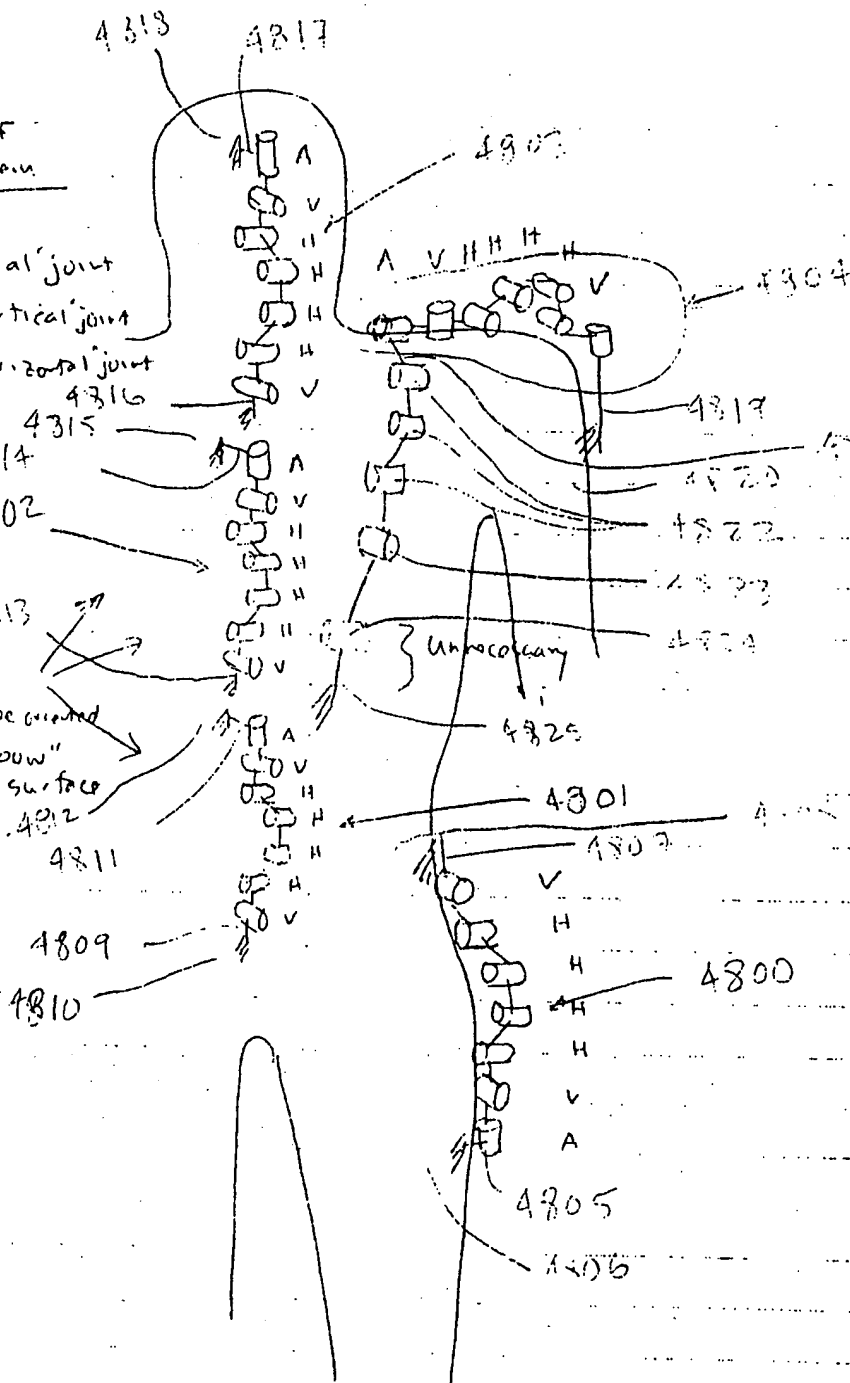 4818 4817
4803
al joint
A
V
H
H
H
H
V
A V H H H H V
4804
tical joint
zontal joint
4816
4815
14
02
4819
4820
4822
4823
4824
13
A
V
H
H
H
H
V
} Unnecessary
4825
be oriented
surface
4812
4811
A
V
H
H
H
H
V
4801
4807
4809
4810
V
H
H
H
H
V
A
4800
4805
4806